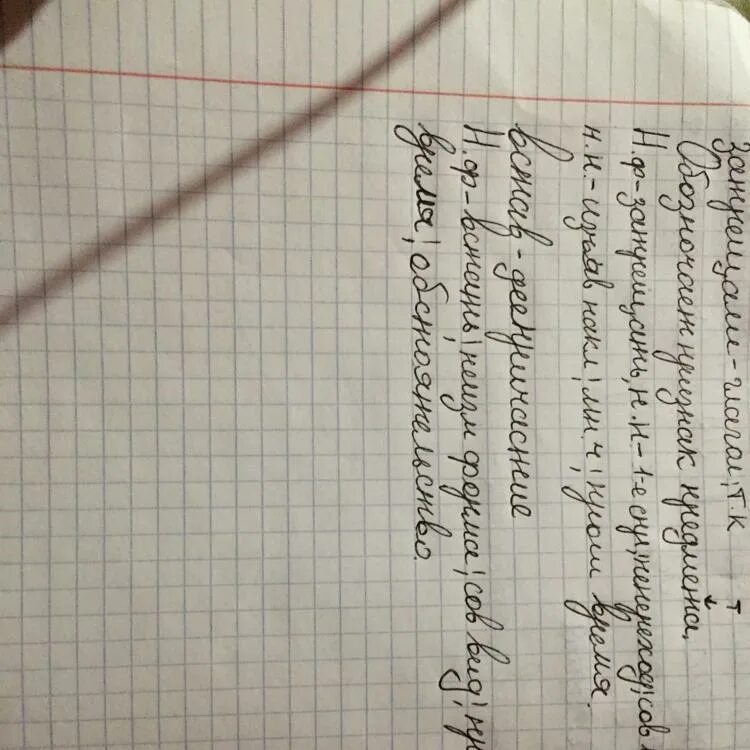 Затрещали - глагол, т.к
Обозночает признак предмета,
Н.ф-затрещать, н.н-1-е спр, неперехоd, сов
н.н-изъяв накл, мн.ч, прош время.
встав - деепричастие
Н.ф-встать, неизм форма, сов вид, пр
время, обстоятельство.